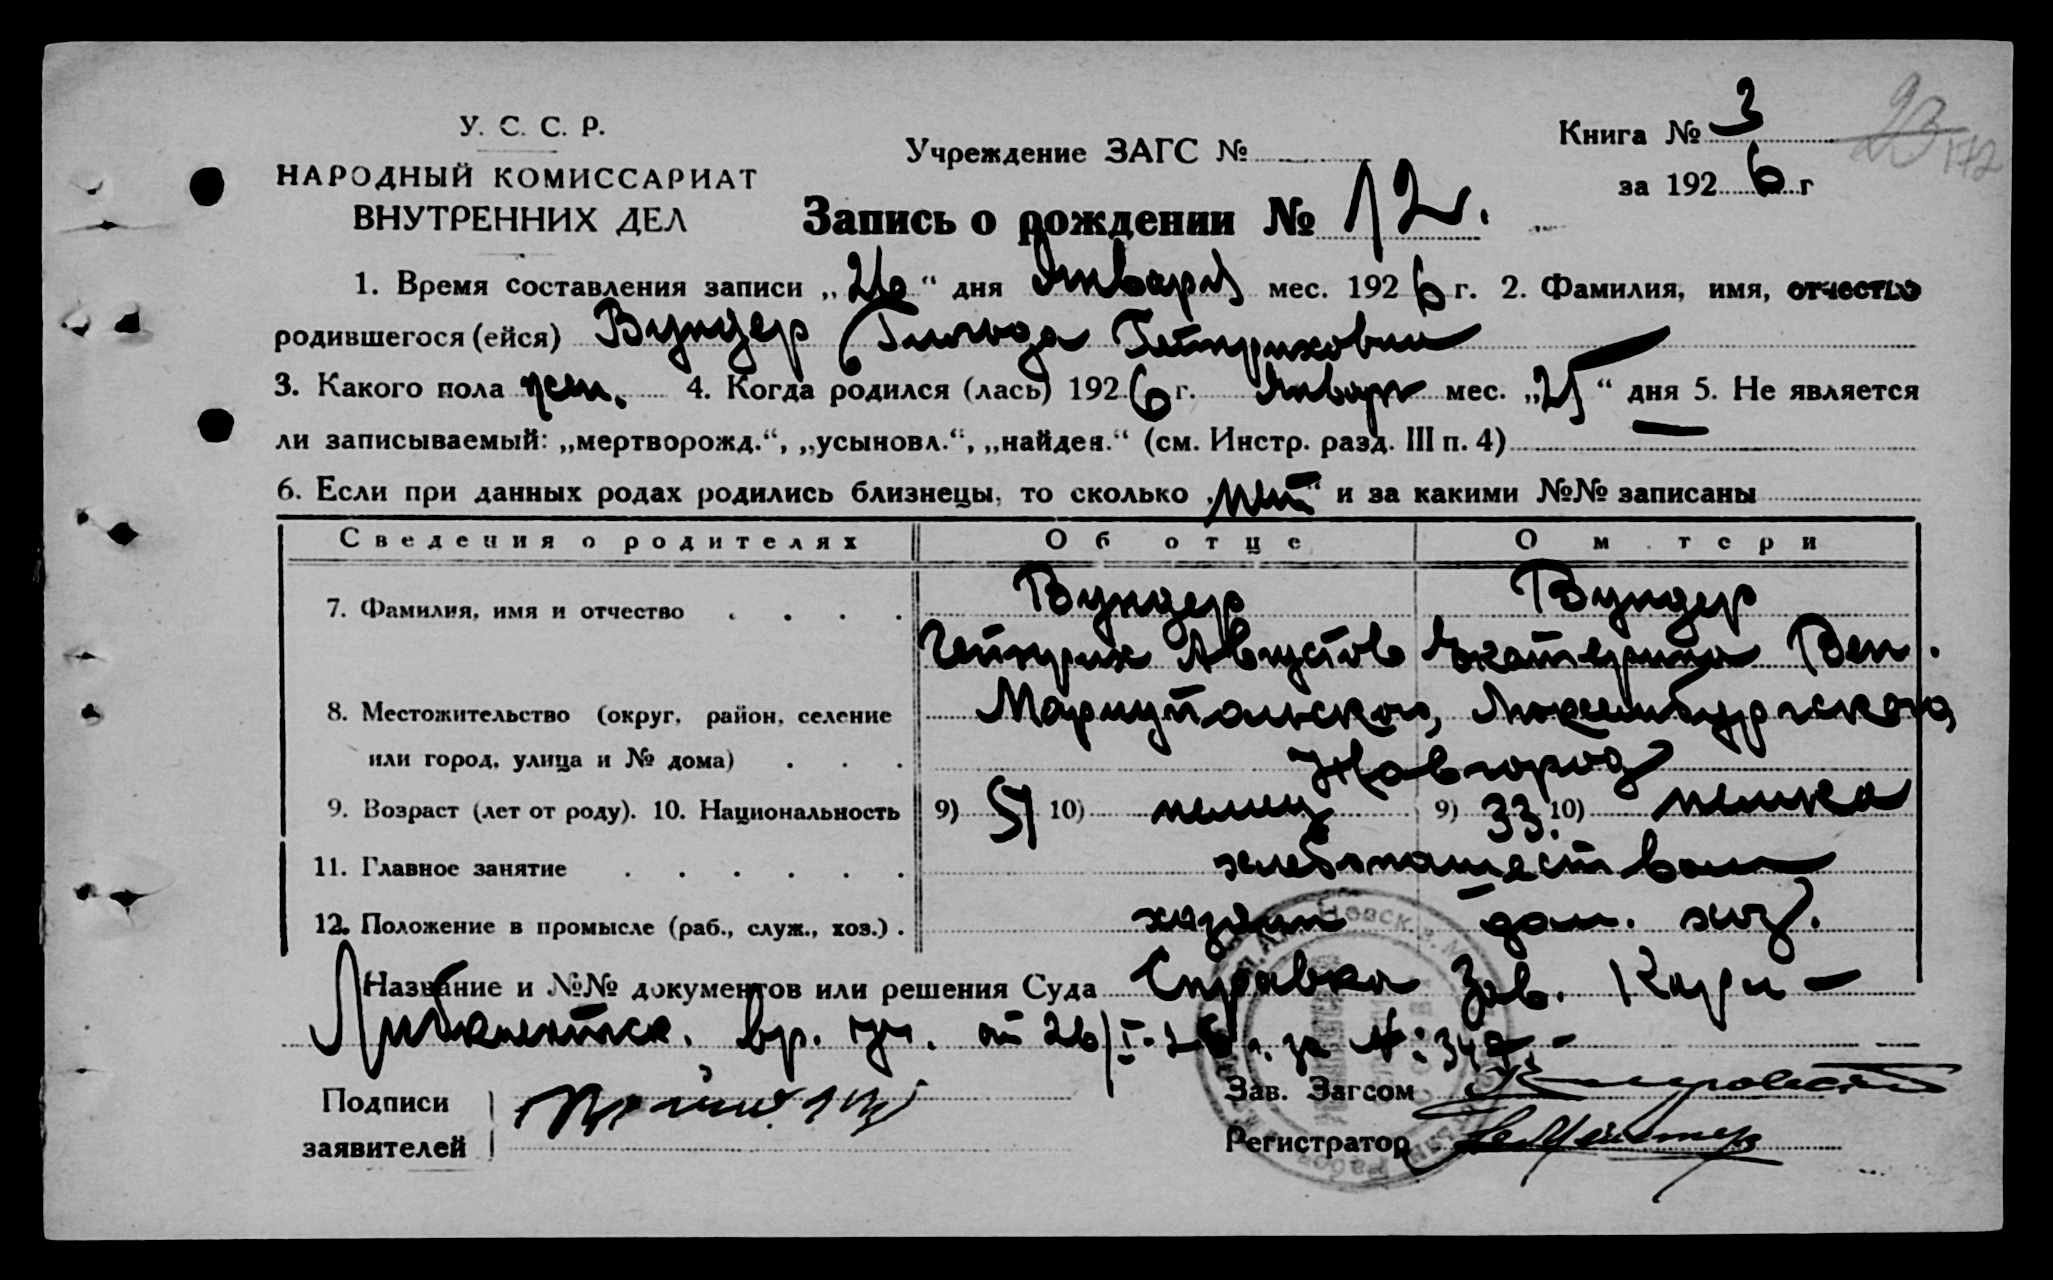 У. С. С. Р.
НАРОДНЫЙ КОМИССАРИАТ
ВНУТРЕННИХ ДЕЛ
Учреждение ЗАГС №
Книга № 3
за 1926 г
23
172
Запись о рождении № 12.
1. Время составления записи „26“ дня Января мес. 1926 г. 2. Фамилия, имя, отчество
родившегося (ейся) Вундер Гильда Гейнриховна
3. Какого пола жен. 4. Когда родился (лась) 1926 г. Января мес. „25“ дня 5. Не является
ли записываемый: „мертворожд.“, „усыновл.“, „найден.“ (см. Инстр. разд. III п. 4) —
6. Если при данных родах родились близнецы, то сколько „нет“ и за какими №№ записаны
Сведения о родителях Об отце О м тери
7. Фамилия, имя и отчество Вундер Вундер
Гейнрих Августов Екатерина Вен.
8. Местожительство (округ, район, селение Мариупольского, Люксембургского,
или город, улица и № дома) Жавгород
9. Возраст (лет от роду). 10. Национальность 9) 51 10) немец 9) 33. 10) немка
11. Главное занятие хлебопашество
12. Положение в промысле (раб., служ., хоз.) хозяин дом. хоз.
Название и №№ документов или решения Суда Справка Зав. Карл-
Либкнехтск. вр. уч. от 26/I-26 г. за №:
Подписи
заявителей
Зав. Загсом
Регистратор